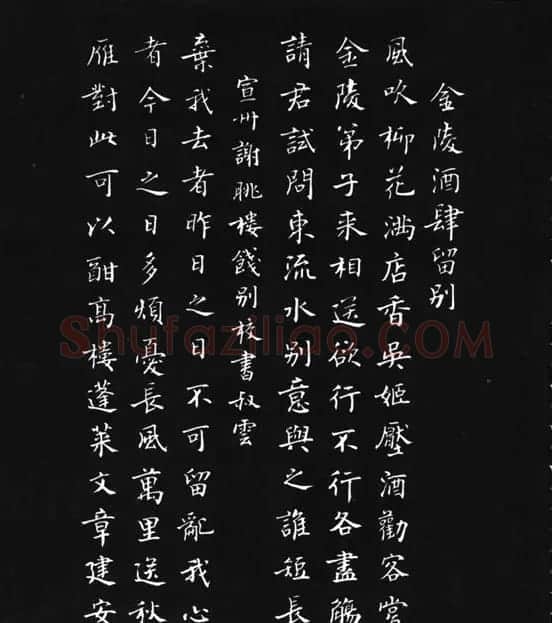 金陵酒肆留别
風吹柳花滿店香吳姬壓酒勸客嘗
金陵弟子来相送欲行不行各盡觴
請君試問東流水别意與之誰短長
宣州謝朓樓餞别校書叔雲
棄我去者昨日之日不可留亂我心
者今日之日多煩憂長風萬里送秋
雁對此可以酣高樓蓬萊文章建安
Shufaziliao.com